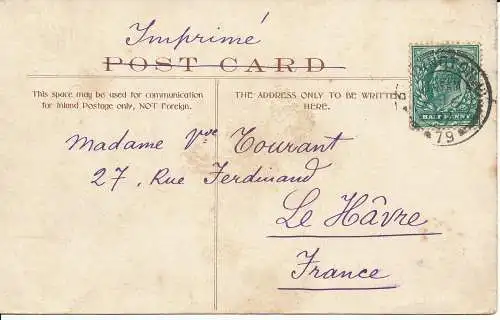 Imprimé
POST CARD
This space may be used for communication
for Inland Postage only, NOT Foreign.
THE ADDRESS ONLY TO BE WRITTEN
HERE.
HALF PENNY
79
Madame Vve Tourant
27, Rue Ferdinand
Le Hâvre
France